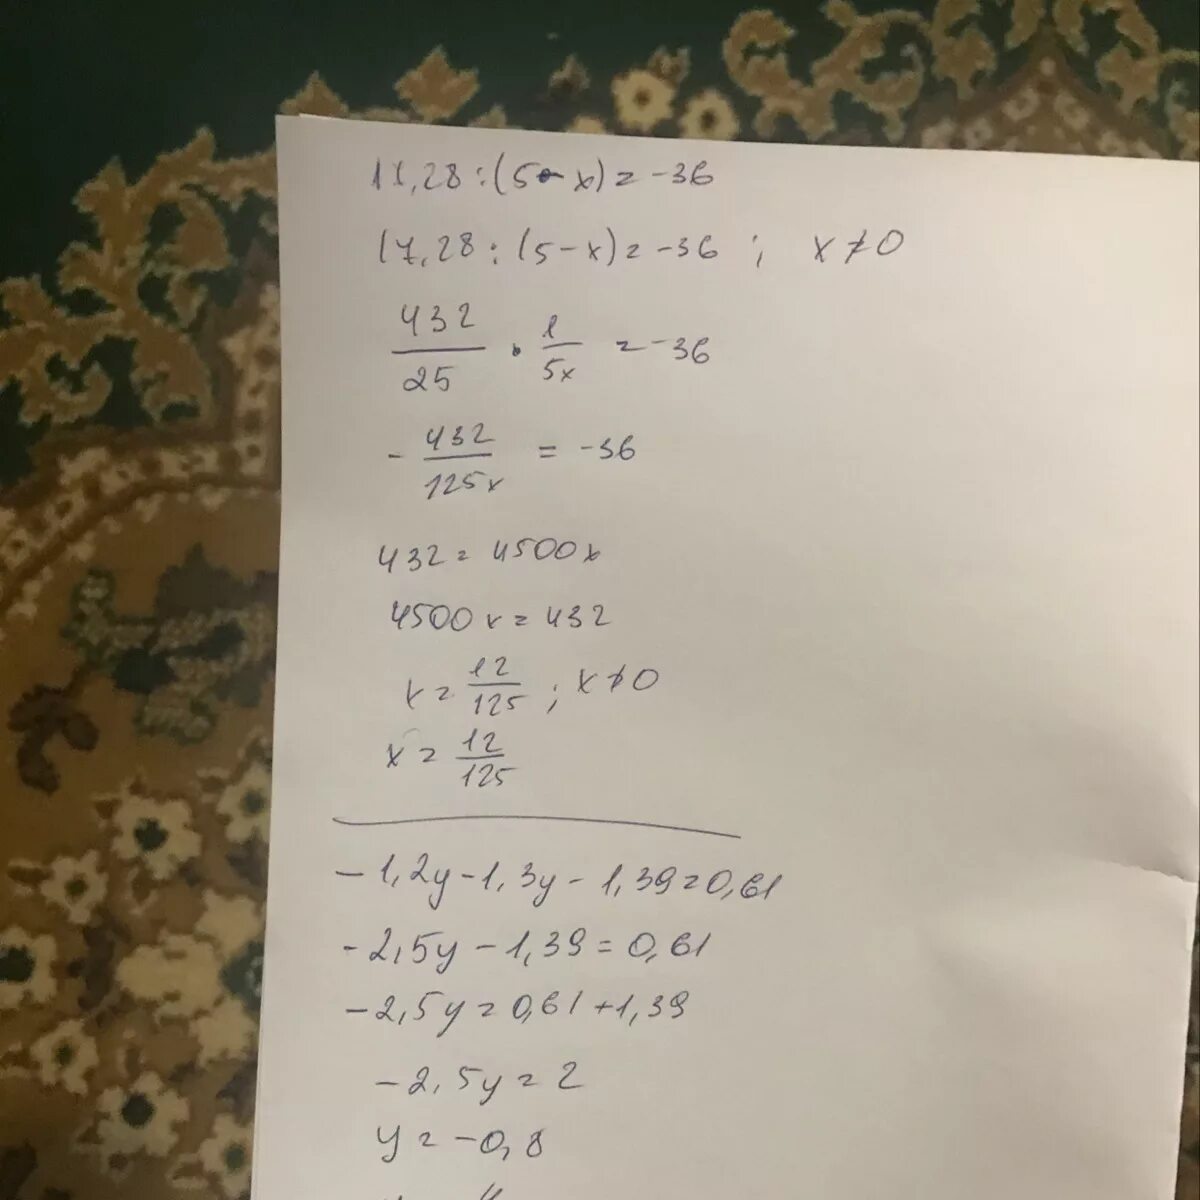 17,28 : (5 - x) = -36
17,28 : (5 - x) = -36 ; x ≠ 0
432/25 · 1/5x = -36
- 432/125x = -36
432 = 4500x
4500x = 432
x = 12/125 ; x ≠ 0
x = 12/125
-1,2y - 1,3y - 1,39 = 0,61
-2,5y - 1,39 = 0,61
-2,5y = 0,61 + 1,39
-2,5y = 2
y = -0,8